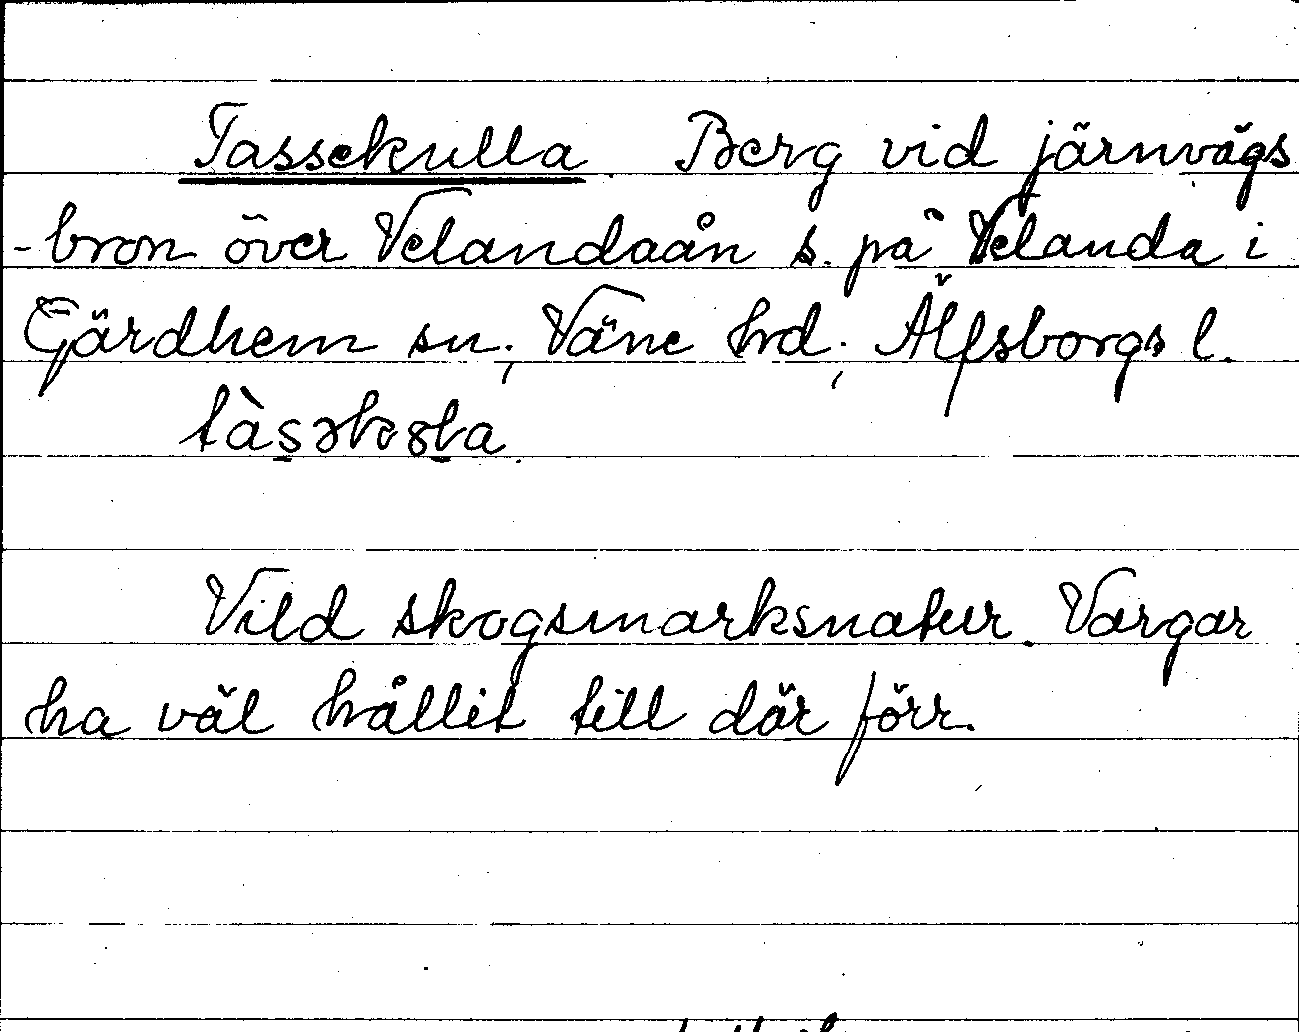 Tassekulla. Berg vid järnvägs
-bron över Velandaån s. på Velanda i
Gärdhem sn; Väne hrd; Älfsborgs l.
Vild skogsmarksnatur. Vargar
ha väl hållit till där förr.